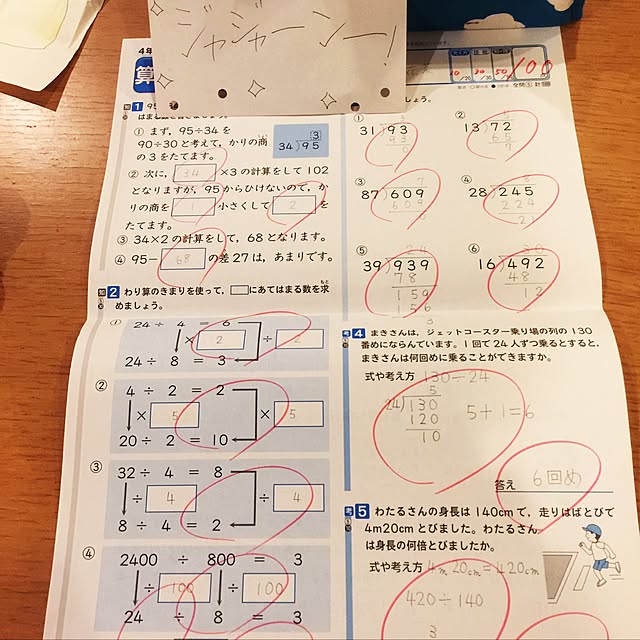 ジャジャーンー!
4年
算
/100
1
① まず，95÷34を
90÷30と考えて，かりの商
の3をたてます。
3
34)95
② 次に， 34 ×3の計算をして102
となりますが，95からひけないので，か
りの商を 1 小さくして 2 を
たてます。
③ 34×2の計算をして，68となります。
④ 95− 68 の差27は，あまりです。
2 わり算のきまりを使って，□にあてはまる数を求
めましょう。
①
24 ÷ 4 = 6
× 2 ÷ 2
24 ÷ 8 = 3
②
4 ÷ 2 = 2
× 5 × 5
20 ÷ 2 = 10
③
32 ÷ 4 = 8
÷ 4 ÷ 4
8 ÷ 4 = 2
④
2400 ÷ 800 = 3
÷ 100 ÷ 100
24 ÷ 8 = 3
しょう。
①
3
31)93
93
0
②
13)72
65
7
③
7
87)609
609
④
8
28)245
224
21
⑤
24
39)939
78
159
156
3
⑥
30
16)492
48
12
4 まきさんは，ジェットコースター乗り場の列の130
番めにならんでいます。1回で24人ずつ乗るとすると，
まきさんは何回めに乗ることができますか。
式や考え方 130÷24
5
24)130
120
10
5+1=6
答え 6回め
5 わたるさんの身長は140cmで，走りはばとびで
4m20cmとびました。わたるさん
は身長の何倍とびましたか。
式や考え方 4m20cm=420cm
420÷140
3